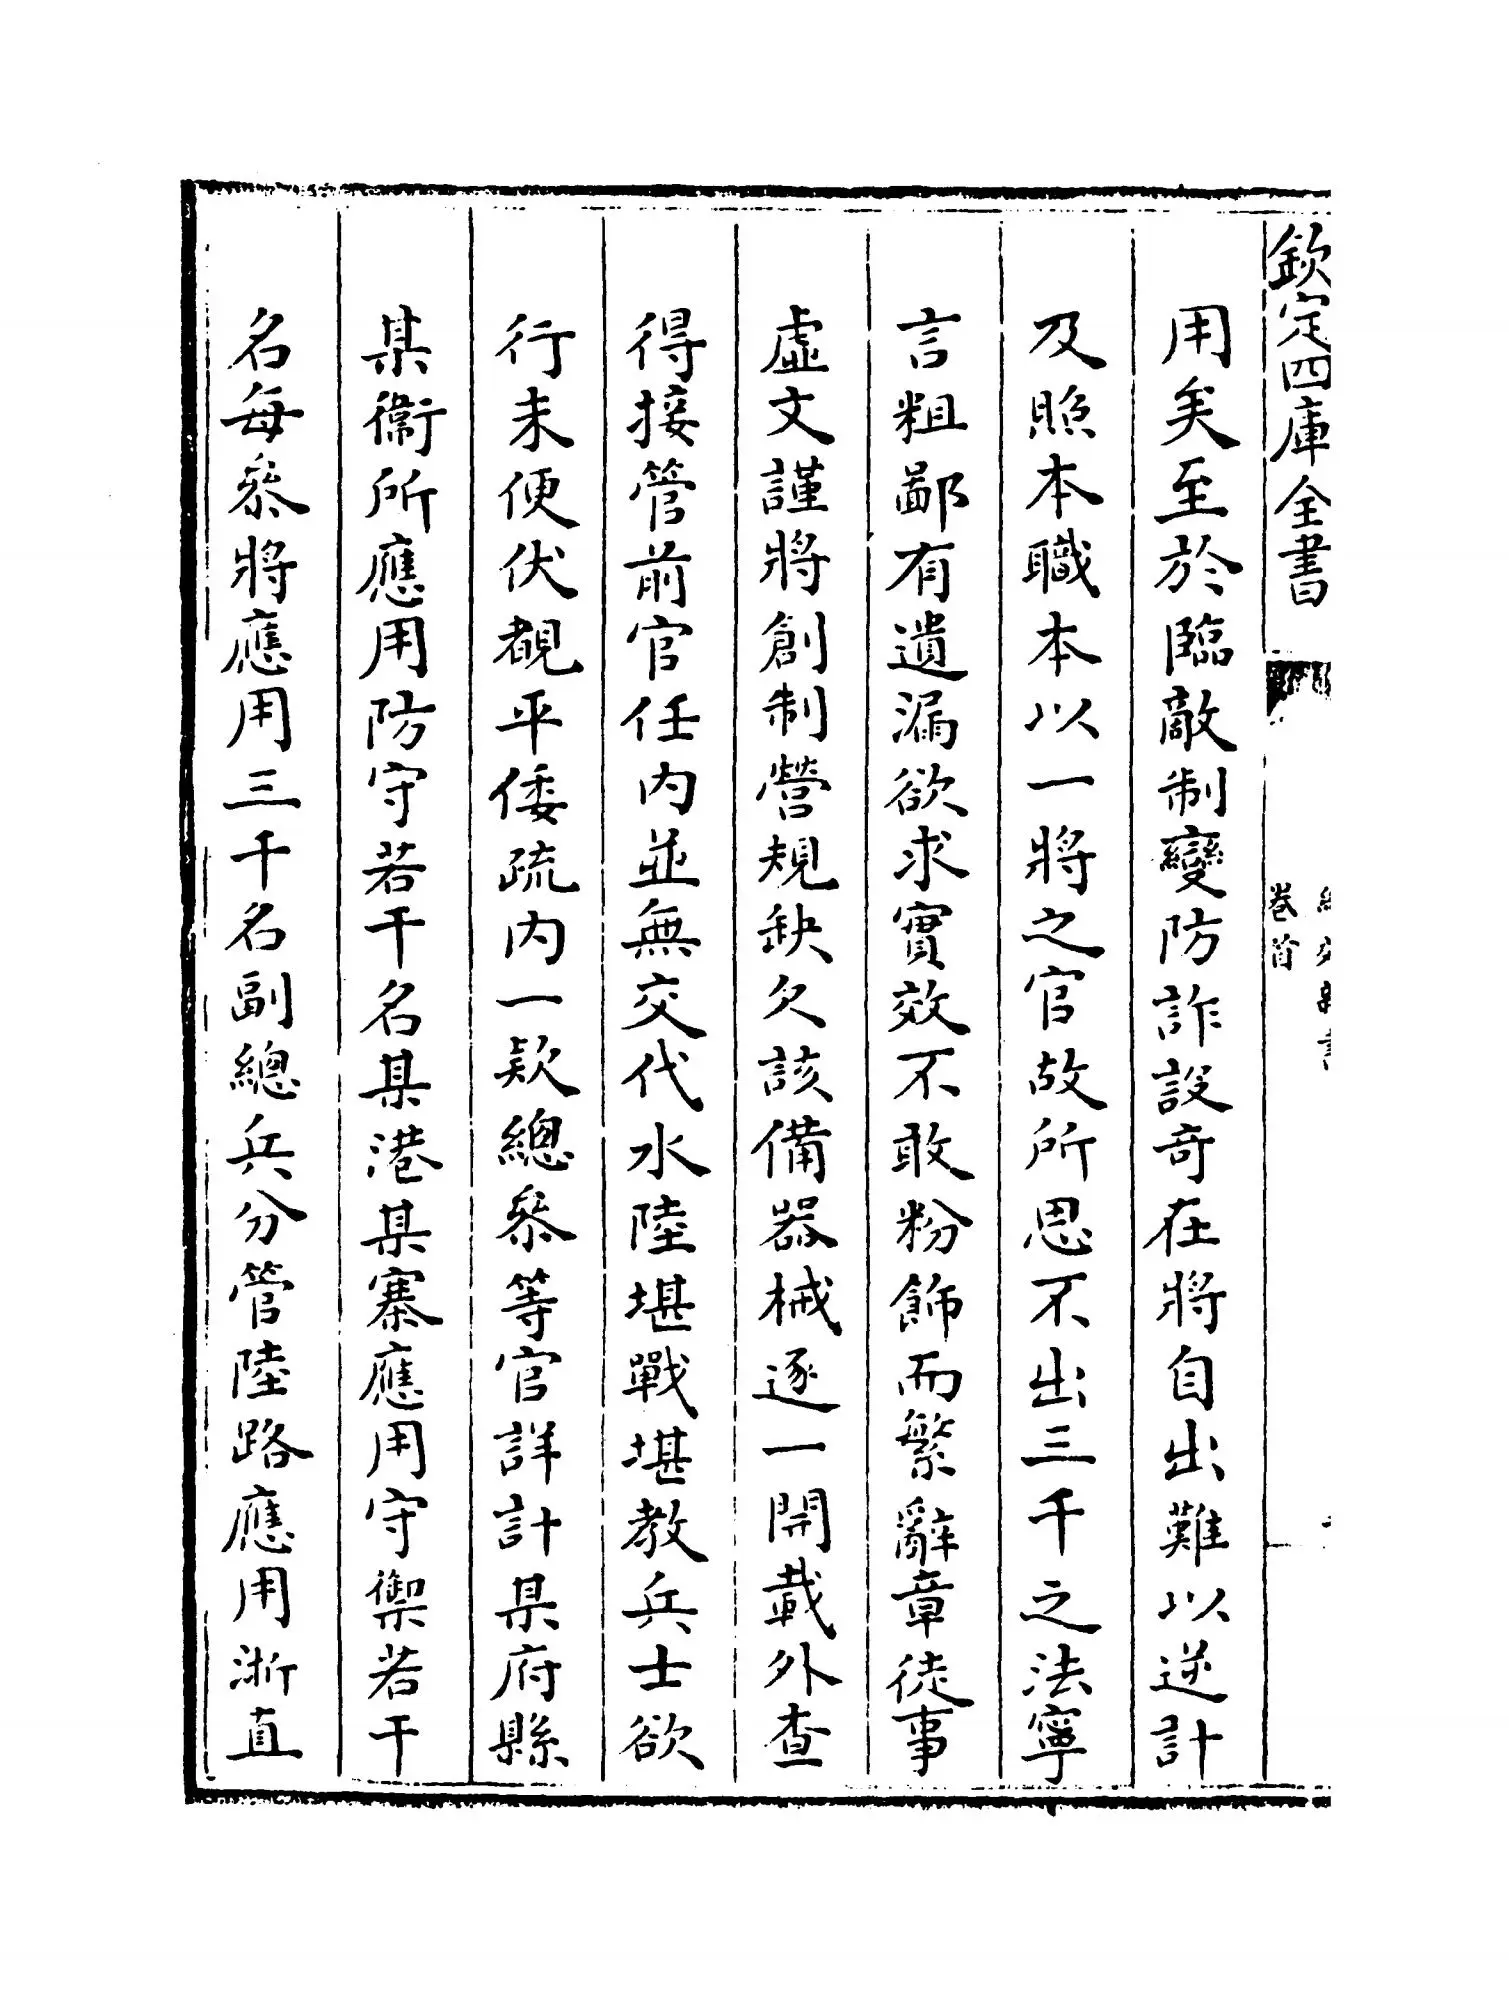 欽定四庫全書
卷首
用矣至於臨敵制變防詐設奇在將自出難以逆計
及照本職本以一將之官故所思不出三千之法寧
言粗鄙有遺漏欲求實效不敢粉飾而繁辭章徒事
虛文謹將創制營規缺欠該備器械逐一開載外查
得接管前官任內並無交代水陸堪戰堪教兵士欲
行未便伏覩平倭疏內一欵總叅等官詳計某府縣
某衞所應用防守若干名某港某寨應用守禦若干
名每叅將應用三千名副總兵分管陸路應用浙直